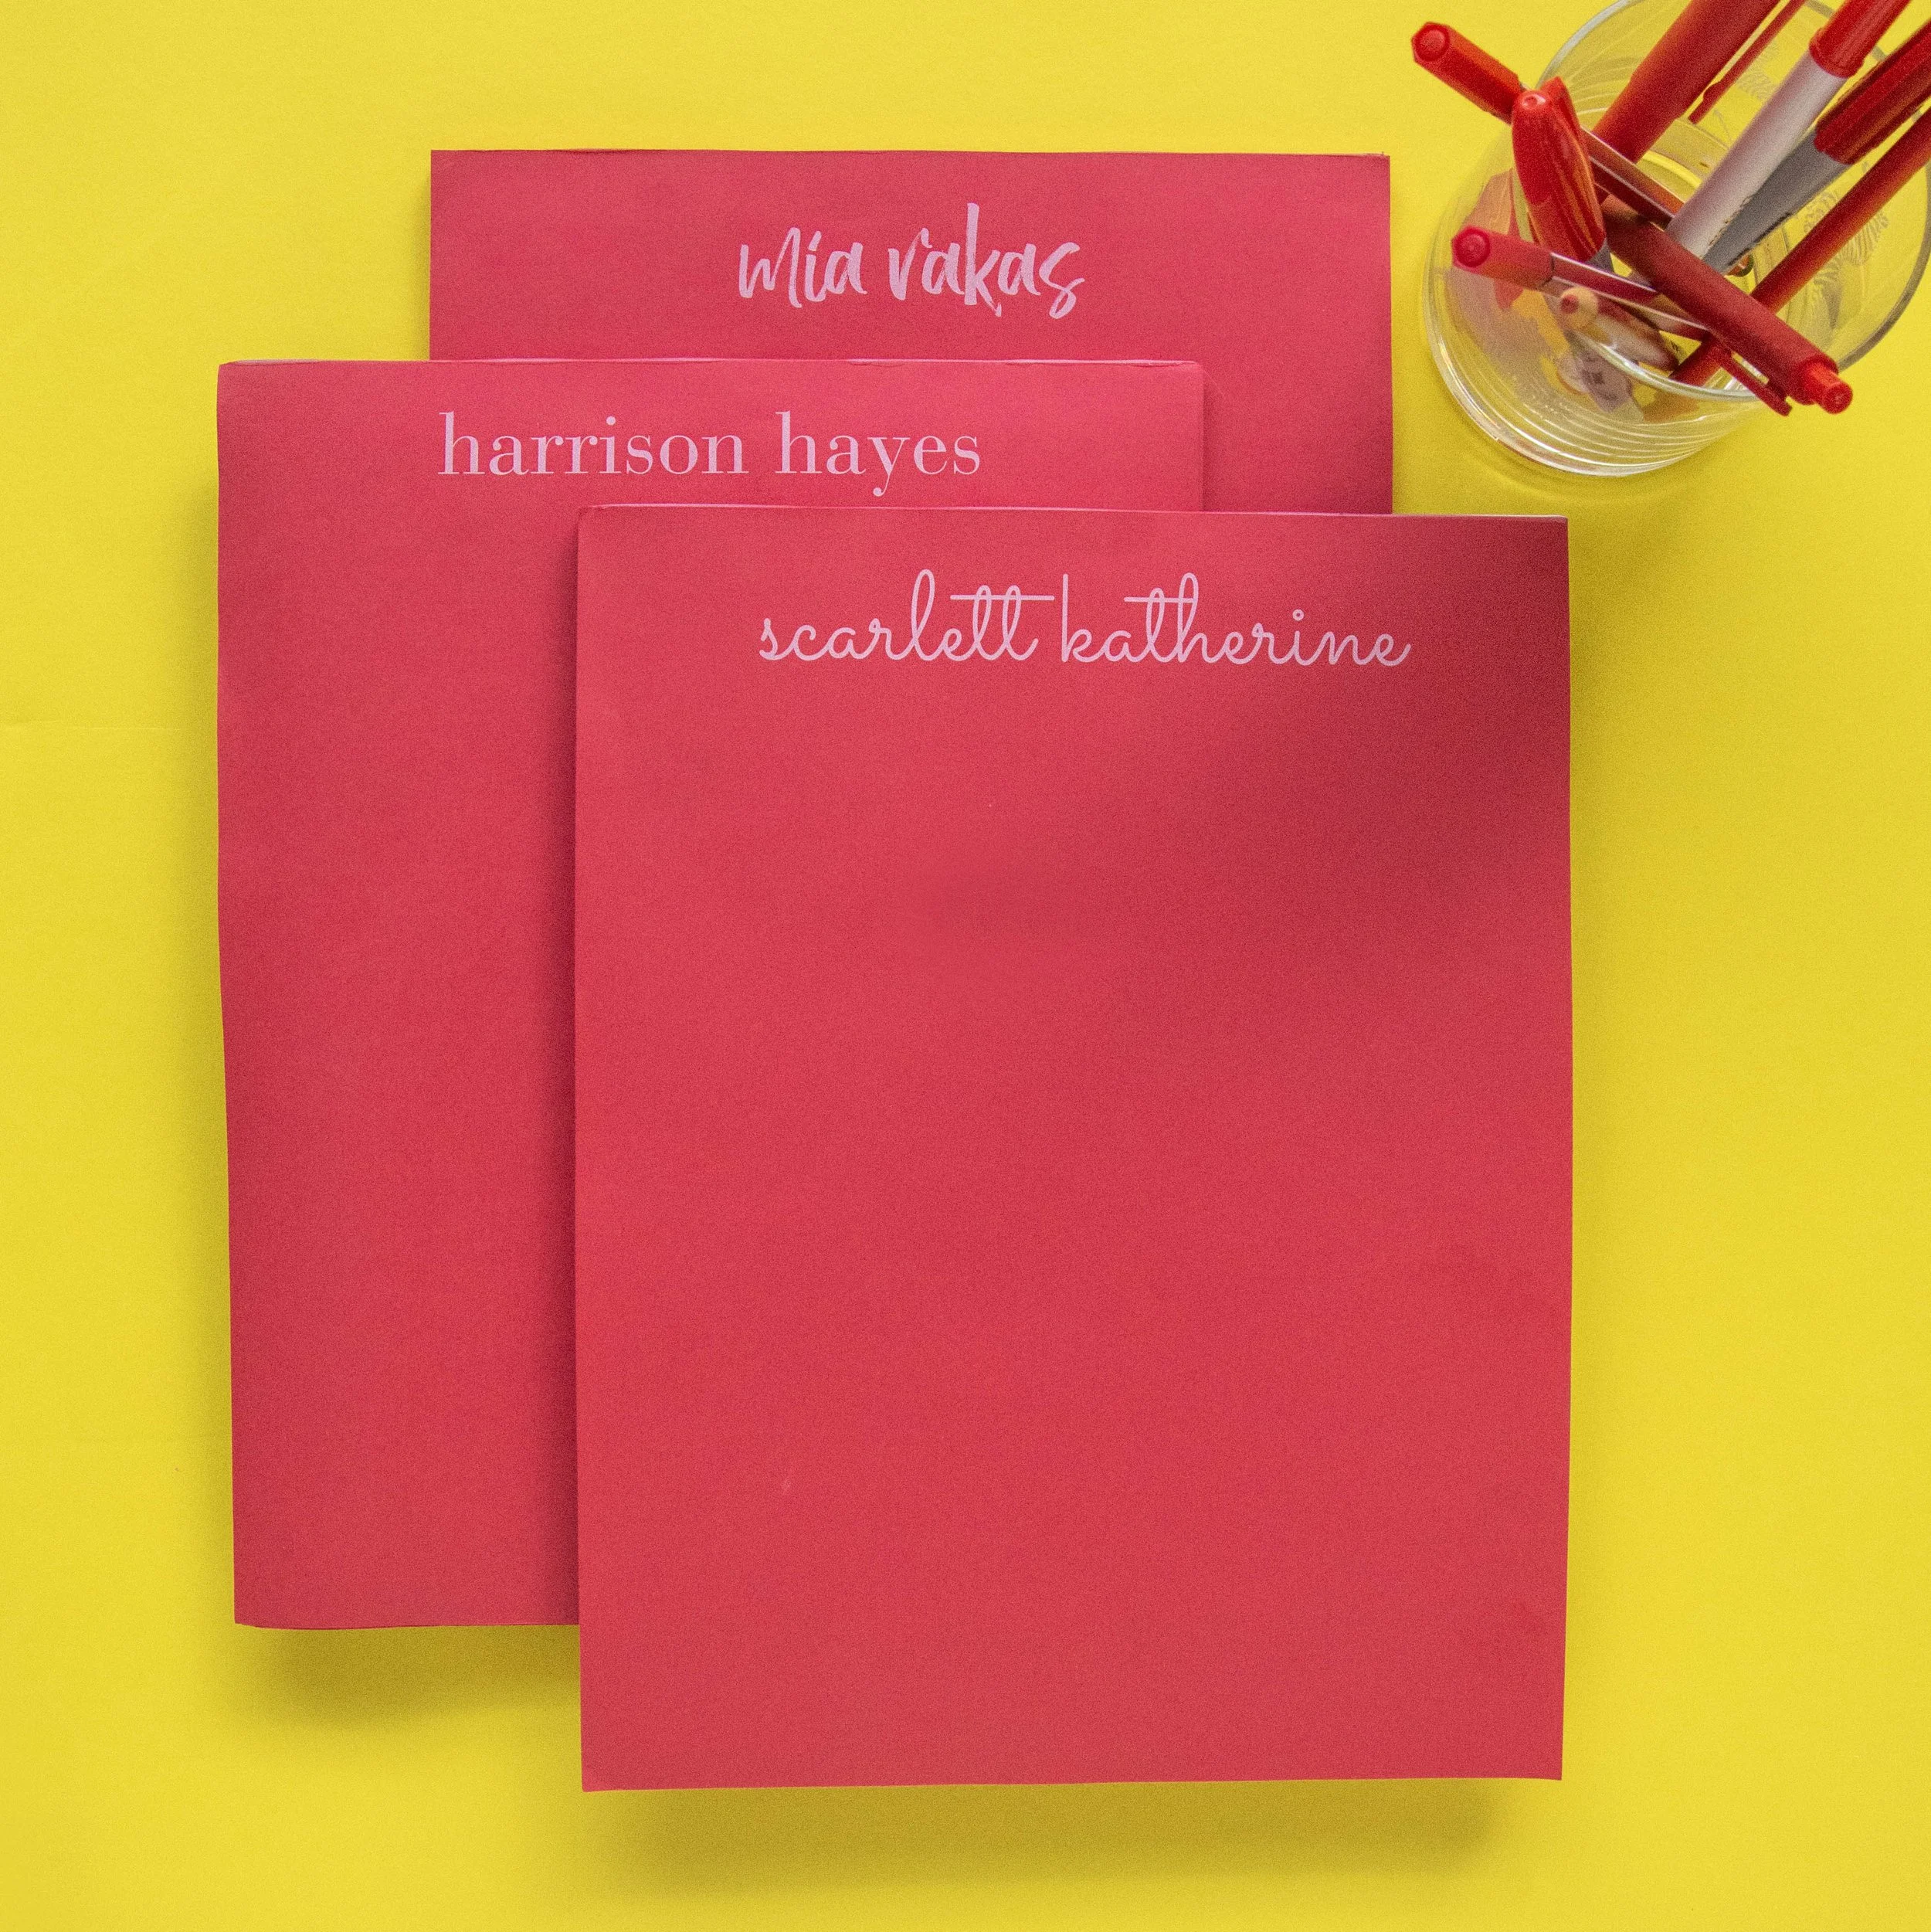 mia rakas
harrison hayes
scarlett katherine